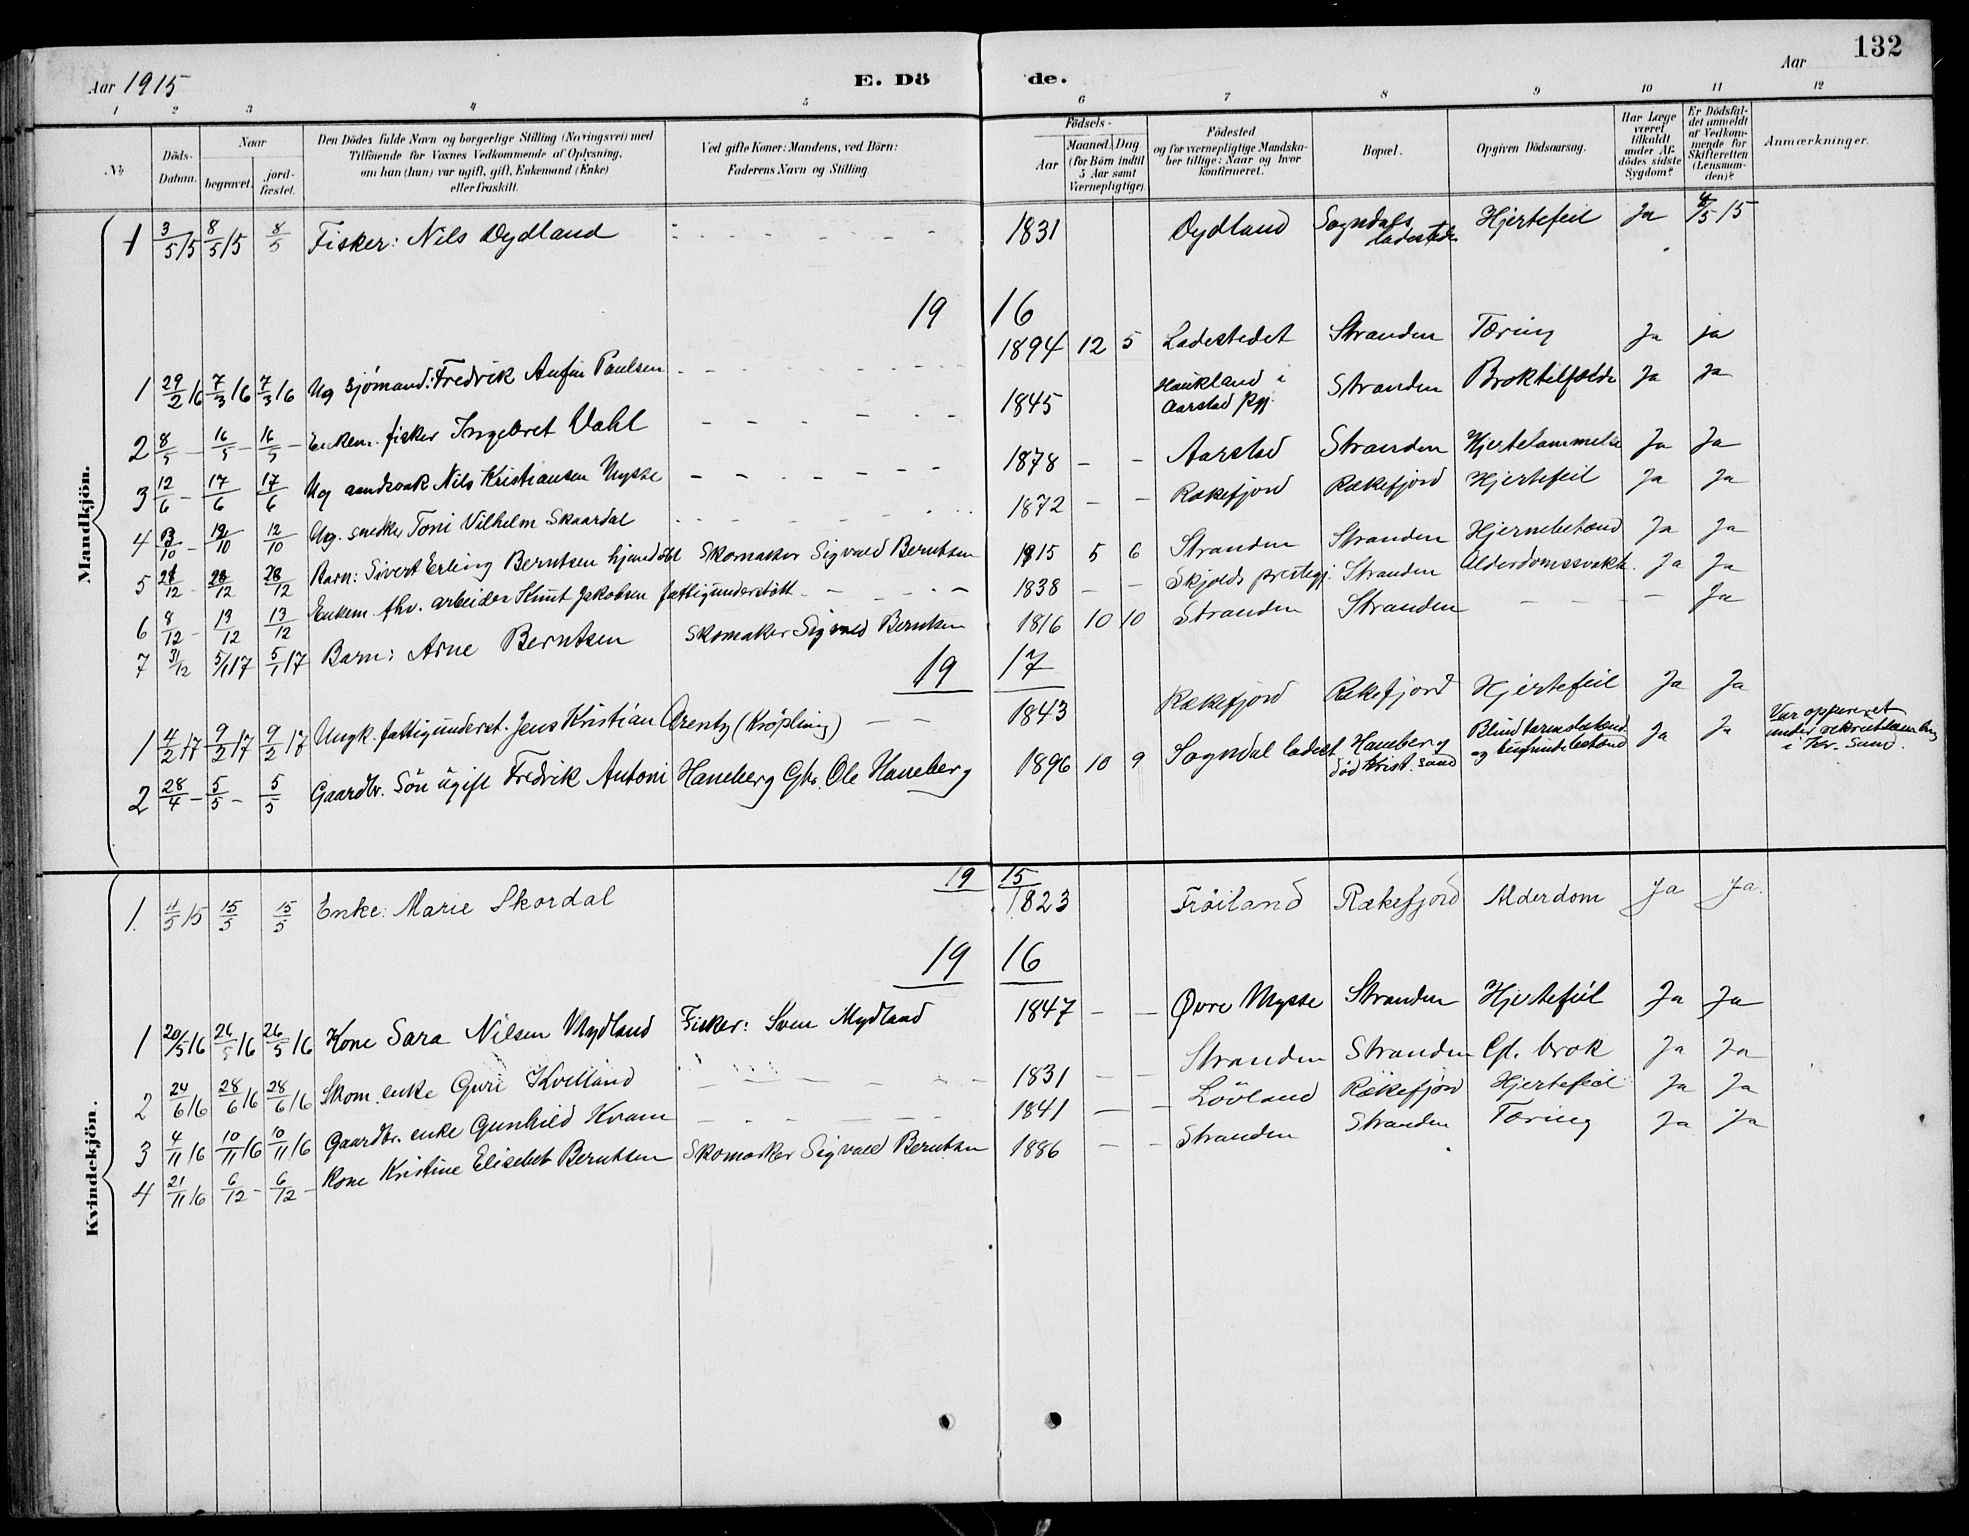 132
Aar 1915
E. Dö de.
Aar
1 2 3 4 5 6 7 8 9 10 11 12
No.
Döds-Datum.
Naar
begravet.
jord-fæstet.
Den Dödes fulde Navn og borgerlige Stilling (Næringsvei) med
Tilföiende for Voxnes Vedkommende af Oplysning,
om han (hun) var ugift, gift, Enkemand (Enke)
eller fraskilt.
Ved gifte Koner: Mandens, ved Börn:
Faderens Navn og Stilling.
Födsels-
Aar
Maaned. Dag
(for Börn indtil
5 Aar samt
Værnepligtige).
Födested
og for værnepligtige Mandska-
ber tillige: Naar og hvor
konfirmeret.
Bopæl.
Opgiven Dödsaarsag.
Har Læge
været
tilkaldt
under Af-
dödes sidste
Sygdom?
Er Dödsfal-
det anmeldt
af Vedkom-
mende for
Skifteretten
(Lensman-
den)?
Anmærkninger.
Mandkjön.
1 3/5 15 8/5 15 8/5 Fisker: Nils Dydland 1831 Dydland Sogndals ladested Hjertefeil Ja 8/5 15
19 16
1 29/2 16 7/3 16 7/3 16 Ug sjömand: Fredrik Anfin Paulsen 1894 12 5 Ladestedet Stranden Tæring Ja ja
2 8/5 – 16/5 – 16/5 – Enkem. fisker Ingebret Dahl 1845 Haukland i Aarstad Pgj. Stranden Ja Ja
3 12/6 – 17/6 17/6 Ug aandssvak Nils Kristiansen Mysse 1878 – – Aarstad Stranden Hjertelammelse Ja Ja
4 3/10 – 12/10 12/10 Ug. snedker Toni Vilhelm Skaardal 1872 – – Rækefjord Rækefjord Hjertefeil Ja Ja
5 21/12 – 28/12 28/12 Barn: Sivert Erling Berntsen hjemdöbt Skomaker Sigvald Berntsen 1915 5 6 Stranden Stranden Hjernebetænd Ja Ja
6 8/12 – 13/12 13/12 Enkem. fhv. arbeider Knut Jakobsen fattigunderstött 1838 – – Skjolds prestegj. Stranden Alderdomssvakh. Ja Ja
7 31/12 5/1 17 5/1 17 Barn: Arne Berntsen Skomaker Sigvald Berntsen 1816 10 10 Stranden Stranden – – – – Ja
19 17
1 4/2 17 9/2 17 9/2 17 Ungk. fattigunderst. Jens Kristian Arentz (Kröpling) – – 1843 Rækefjord Rækefjord Hjertefeil Ja Ja
2 28/4 – 5/5 – 5/5 Gaardbr. Sön ugift Fredrik Antoni Haneberg Gbr. Ole Haneberg 1896 10 9 Sogndal ladest. Haneberg död Krist.sand Blindtarmsbetænd. og Ja Ja Var under i Kr. Sand.
Kvindekjön.
19 15
1. 11/5 15 15/5 15/5 Enke: Marie Skordal 1823 Fröiland Rækefjord Alderdom Ja Ja.
19 16
1 20/5 16 26/5 16 26/5 16 Kone Sara Nilsen Mydland Fisker: Sven Mydland 1847 – – Øvre Mysse Stranden Hjertefeil Ja Ja
2 24/6 16 28/6 16 28/6 16 Skom. enke Guri Kvelland 1831 – – Stranden Stranden brok Ja Ja
3 4/11 16 10/11 16 10/11 16 Gaardbr. enke Gunhild Kvam 1841 – – Lövland Rækefjord Hjertefeil Ja Ja
4 21/11 16 6/12 – 6/12 – Kone Kristine Elisebet Berntsen Skomaker Sigvald Berntsen 1886 – – Stranden Stranden Tæring Ja Ja